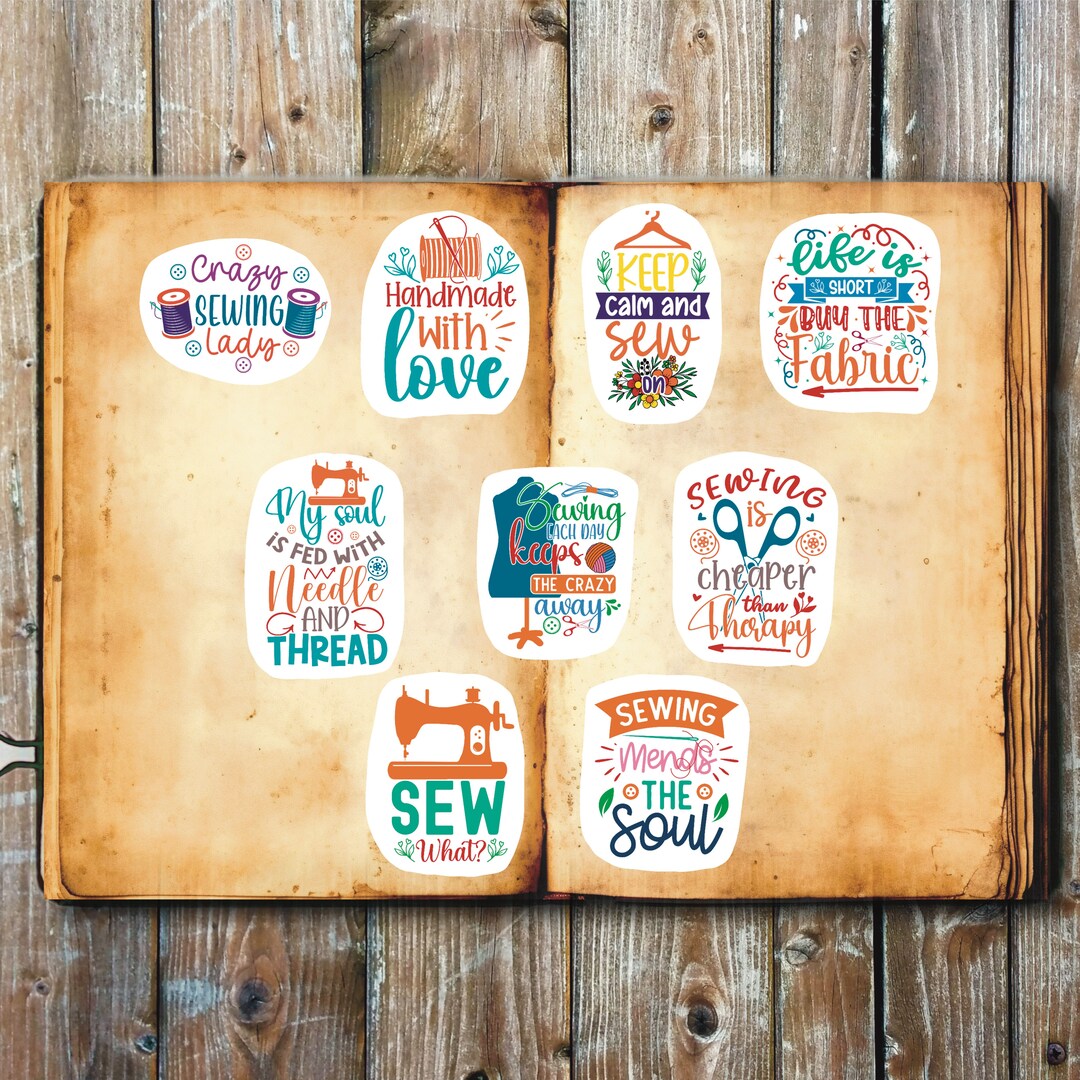 Crazy
SEWING
Lady
Handmade
With
love
KEEP
Calm and
Sew
on
life is
SHORT
BUY THE
Fabric
My soul
IS FED WITH
Needle
AND
THREAD
Sewing
EACH DAY
keeps
THE CRAZY
away
SEWING
is
cheaper
than
Therapy
SEW
What?
SEWING
Mends
THE
Soul